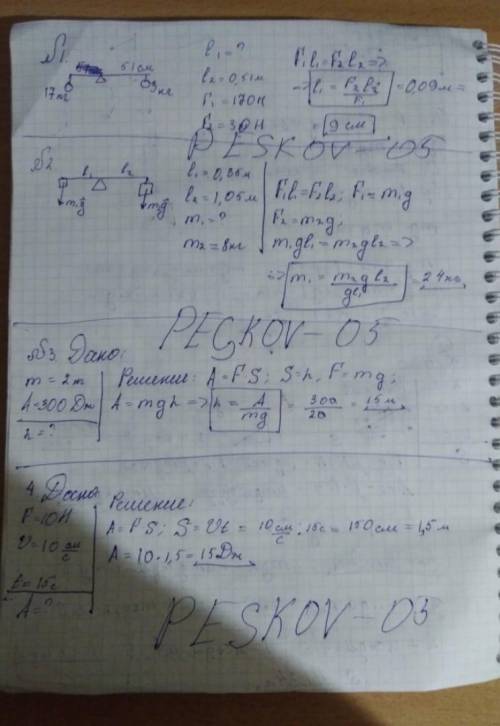 №1.
51 см
17 кг
3 кг
l₁ = ?
l₂ = 0,51 м
F₁ = 170 Н
F₂ = 30 Н
F₁l₁ = F₂l₂ =>
=> l₁ = F₂l₂/F₁ = 0,09 м =
= 9 см
PESKOV-05
№2
l₁ l₂
m₁g
m₂g
l₁ = 0,35 м
l₂ = 1,05 м
m₁ = ?
m₂ = 8 кг
F₁l₁ = F₂l₂; F₁ = m₁g
F₂ = m₂g;
m₁gl₁ = m₂gl₂ =>
=> m₁ = m₂gl₂/gl₁ = 24 кг
PESKOV-05
№3. Дано:
m = 2 т
A = 300 Дж
h = ?
Решение: A = FS; S = h, F = mg;
A = mgh => h = A/mg = 300/20 = 15 м
4. Дано:
F = 10 Н
υ = 10 см/с
t = 15 с
A = ?
Решение:
A = FS; S = υt = 10 см/с · 15 с = 150 см = 1,5 м
A = 10 · 1,5 = 15 Дж
PESKOV-05